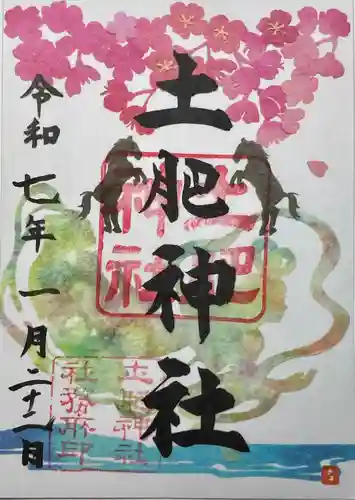 土肥神社
令和七年一月二十一日
土肥神社
土肥神社
社務所印